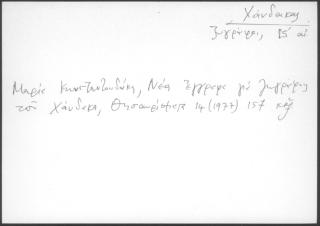 Χάνδακας
ζωγράφοι, ΙΣ΄ αἰ.
Μαρία Κωνσταντουδάκη, Νέα ἔγγραφα γιά ζωγράφους
τοῦ Χάνδακα, Θησαυρίσματα 14 (1977) 157 κἑξ